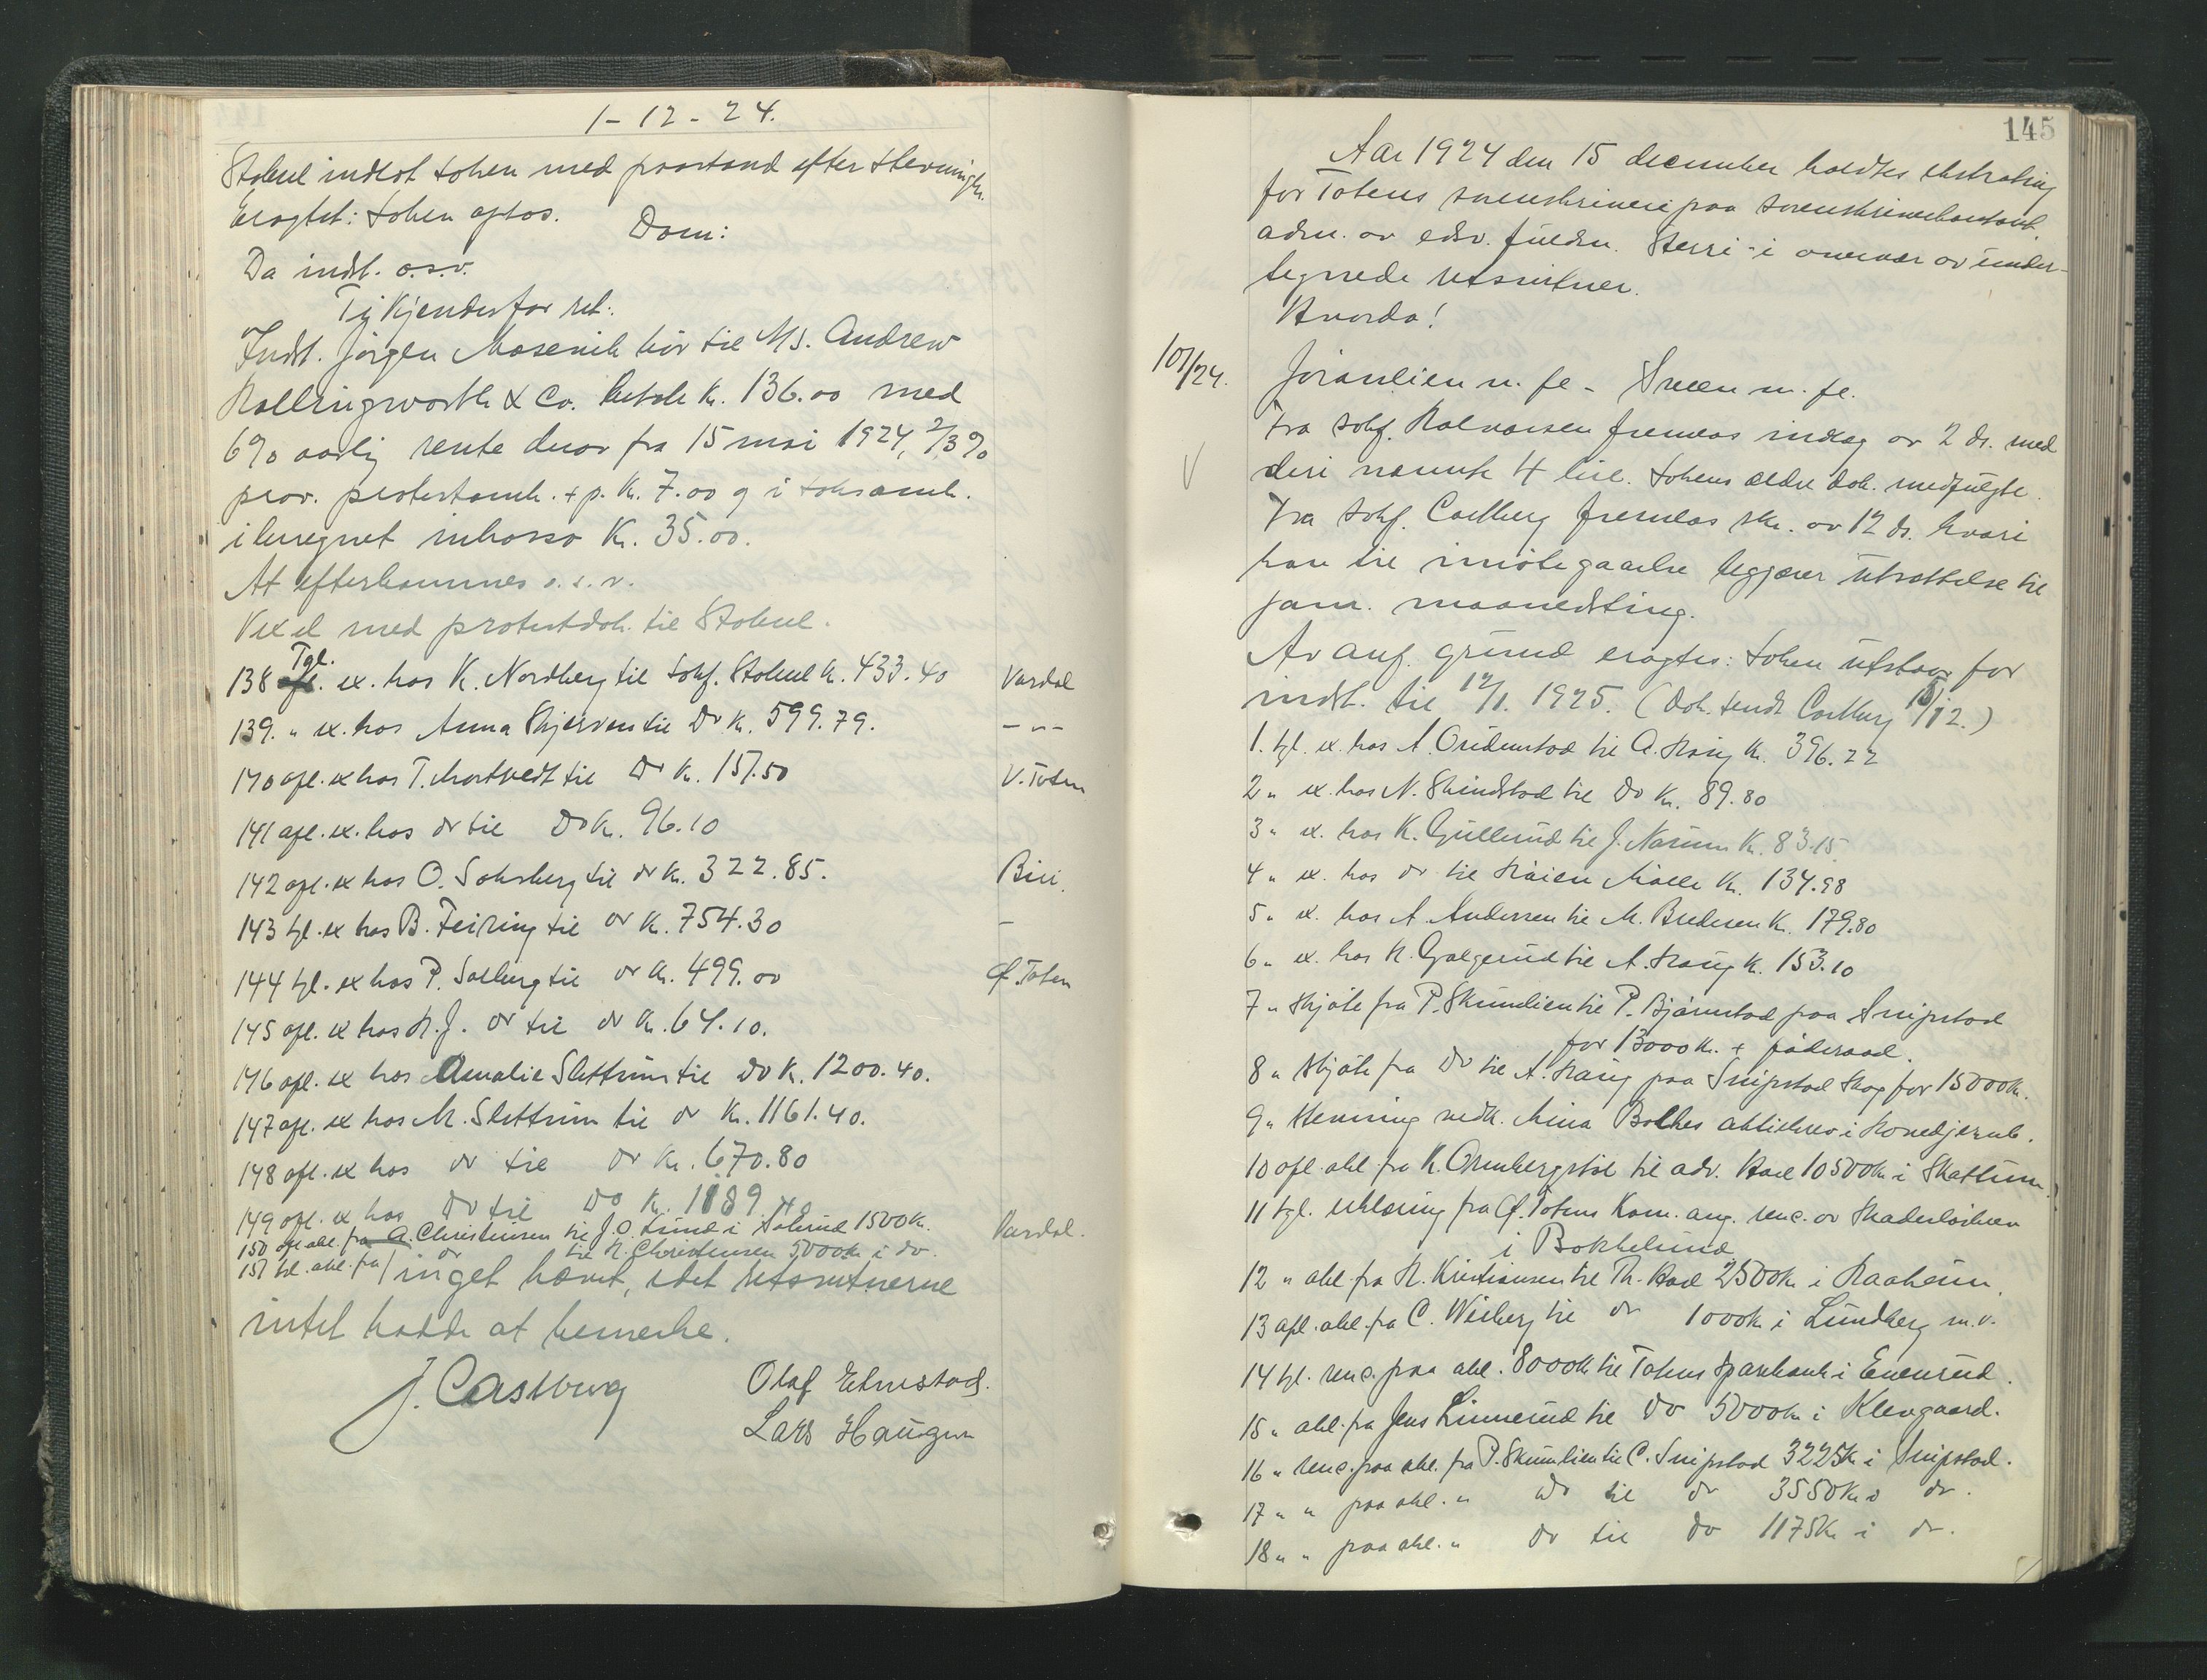 1-12-24.
Stabel indlot saken med paastand efter stevningen.
Eragtet: Saken optas.
Dom:
Da indst. o.s.v.
Ti kjendes for ret:
Indst. Jörgen Mæsenik bör til Ms. Andrew
Hollingworth & Co. betale kr. 136.00 med
6% aarlig rente derav fra 15 mai 1924, 2/3 %
prov. protestomk. + p. kr. 7.00 og i saksomk.
iberegnet inkasso kr. 35.00.
At efterkommes o.s.v.
Vexel med protestdok. til Stabel.
Tgl.
138 ex. hos K. Nordberg til sakf. Stabel kr. 433.40 Vardal
139. " ex. hos Anna Skjerven til Do kr. 599.79. - " -
140 afl. ex hos T. Mortvedt til Do kr. 157.50 V. Toten
141 afl. ex. hos do til Do kr. 96.10
142 afl. ex hos O. Saksberg til do kr. 322.85. Biri.
143 tgl. ex hos B. Feiring til do kr. 754.30 -
144 tgl. ex hos P. Solberg til do kr. 499.00 Ø. Toten
145 afl. ex hos H.J. do til do kr. 64.10.
146 afl. ex hos Amalie Slettum til Do kr. 1200.40.
147 afl. ex hos M. Slettum til do kr. 1161.40.
148 afl. ex hos do til do kr. 670.80
149 afl. ex hos Do til Do kr. 1189.40
150 afl. obl. fra A. Christensen til J.O. Lund i 1500 kr. Vardal.
151 tgl. obl. fra do til N. Christensen 5000 kr i do.
inget hævet, idet retsvitnerne
intet hadde at bemerke.
J. Castberg
Olaf Elmstad.
Lars Haugen
145
Aar 1924 den 15 december holdtes ekstrating
for Totens sorenskriveri paa sorenskriverkontoret
adm. av edsv. fuldm. Sterri i overvær av under-
tegnede retsvitner.
Hvorda!
101/24. Joranlien m. fl. - Sveen m. fl.
Fra sakf. Halvorsen fremlas indlæg av 2 ds. med
deri nævnte 4 bil. Sakens ældre dok. medfulgte.
V
Fra sakf. Castberg fremlas skr. av 12 ds. hvori
han til imötegaaelse begjærer utsættelse til
jan. maanedsting.
Av anf. grund eragtes: Saken utstaar for
indst. til 12/1. 1925. (Dok. sendt Castberg 15/12.)
1. tgl. ex. hos A. Ovidenstad til A. Haug kr. 396.22
2 " ex. hos N. Skindstad til Do kr. 89.80
3 " ex. hos K. Gullerud til J. Narum kr. 83.15.
4 " ex. hos do til Hoien Mölle kr. 134.98
5 " ex. hos A. Andersen til M. Bredesen kr. 179.80
6 " ex. hos H. Galgerud til A. Haug kr. 153.10
7 " Skjöte fra P. Skumlien til P. Bjørnstad paa Snipstad
for 13000 kr. + föderaad.
8 " Skjöte fra Do til A. Haug paa Snipstad skog for 15000 kr.
9 " Stevning vedk. Mina Bolkes aktiebrev i
10 afl. obl. fra K. Ormbergstöl til adv. Hoel 10500 kr i Skattum.
11 tgl. erklæring fra Ø. Totens Kom. ang. vene. av
i Bokkelund
12 " obl. fra H. Kristiansen til Th. Hoel 2500 kr i Raaheim.
13 afl. obl. fra C. Wiberg til do 1000 kr i Lundberg m.v.
14 tgl. vene. paa obl. 8000 kr til Totens Sparebank i Enerud.
15 " obl. fra Jens Linnerud til Do 5000 kr i Klevgaard.
16 " vene. paa obl. fra P. Skumlien til C. Snipstad 3225 kr i Snipstad.
17 " " paa obl. " Do til do 3550 kr i do.
18 " " paa obl. " Do til Do 1175 kr i do.